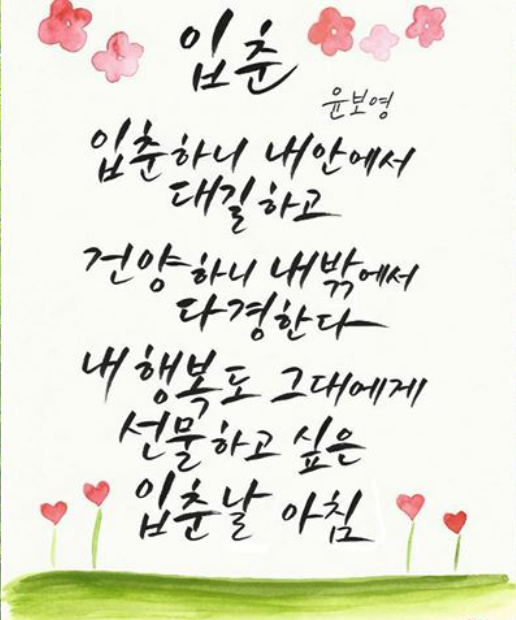 입춘
윤보영
입춘하니 내안에서
대길하고
건양하니 내밖에서
다경한다
내 행복도 그대에게
선물하고 싶은
입춘날 아침